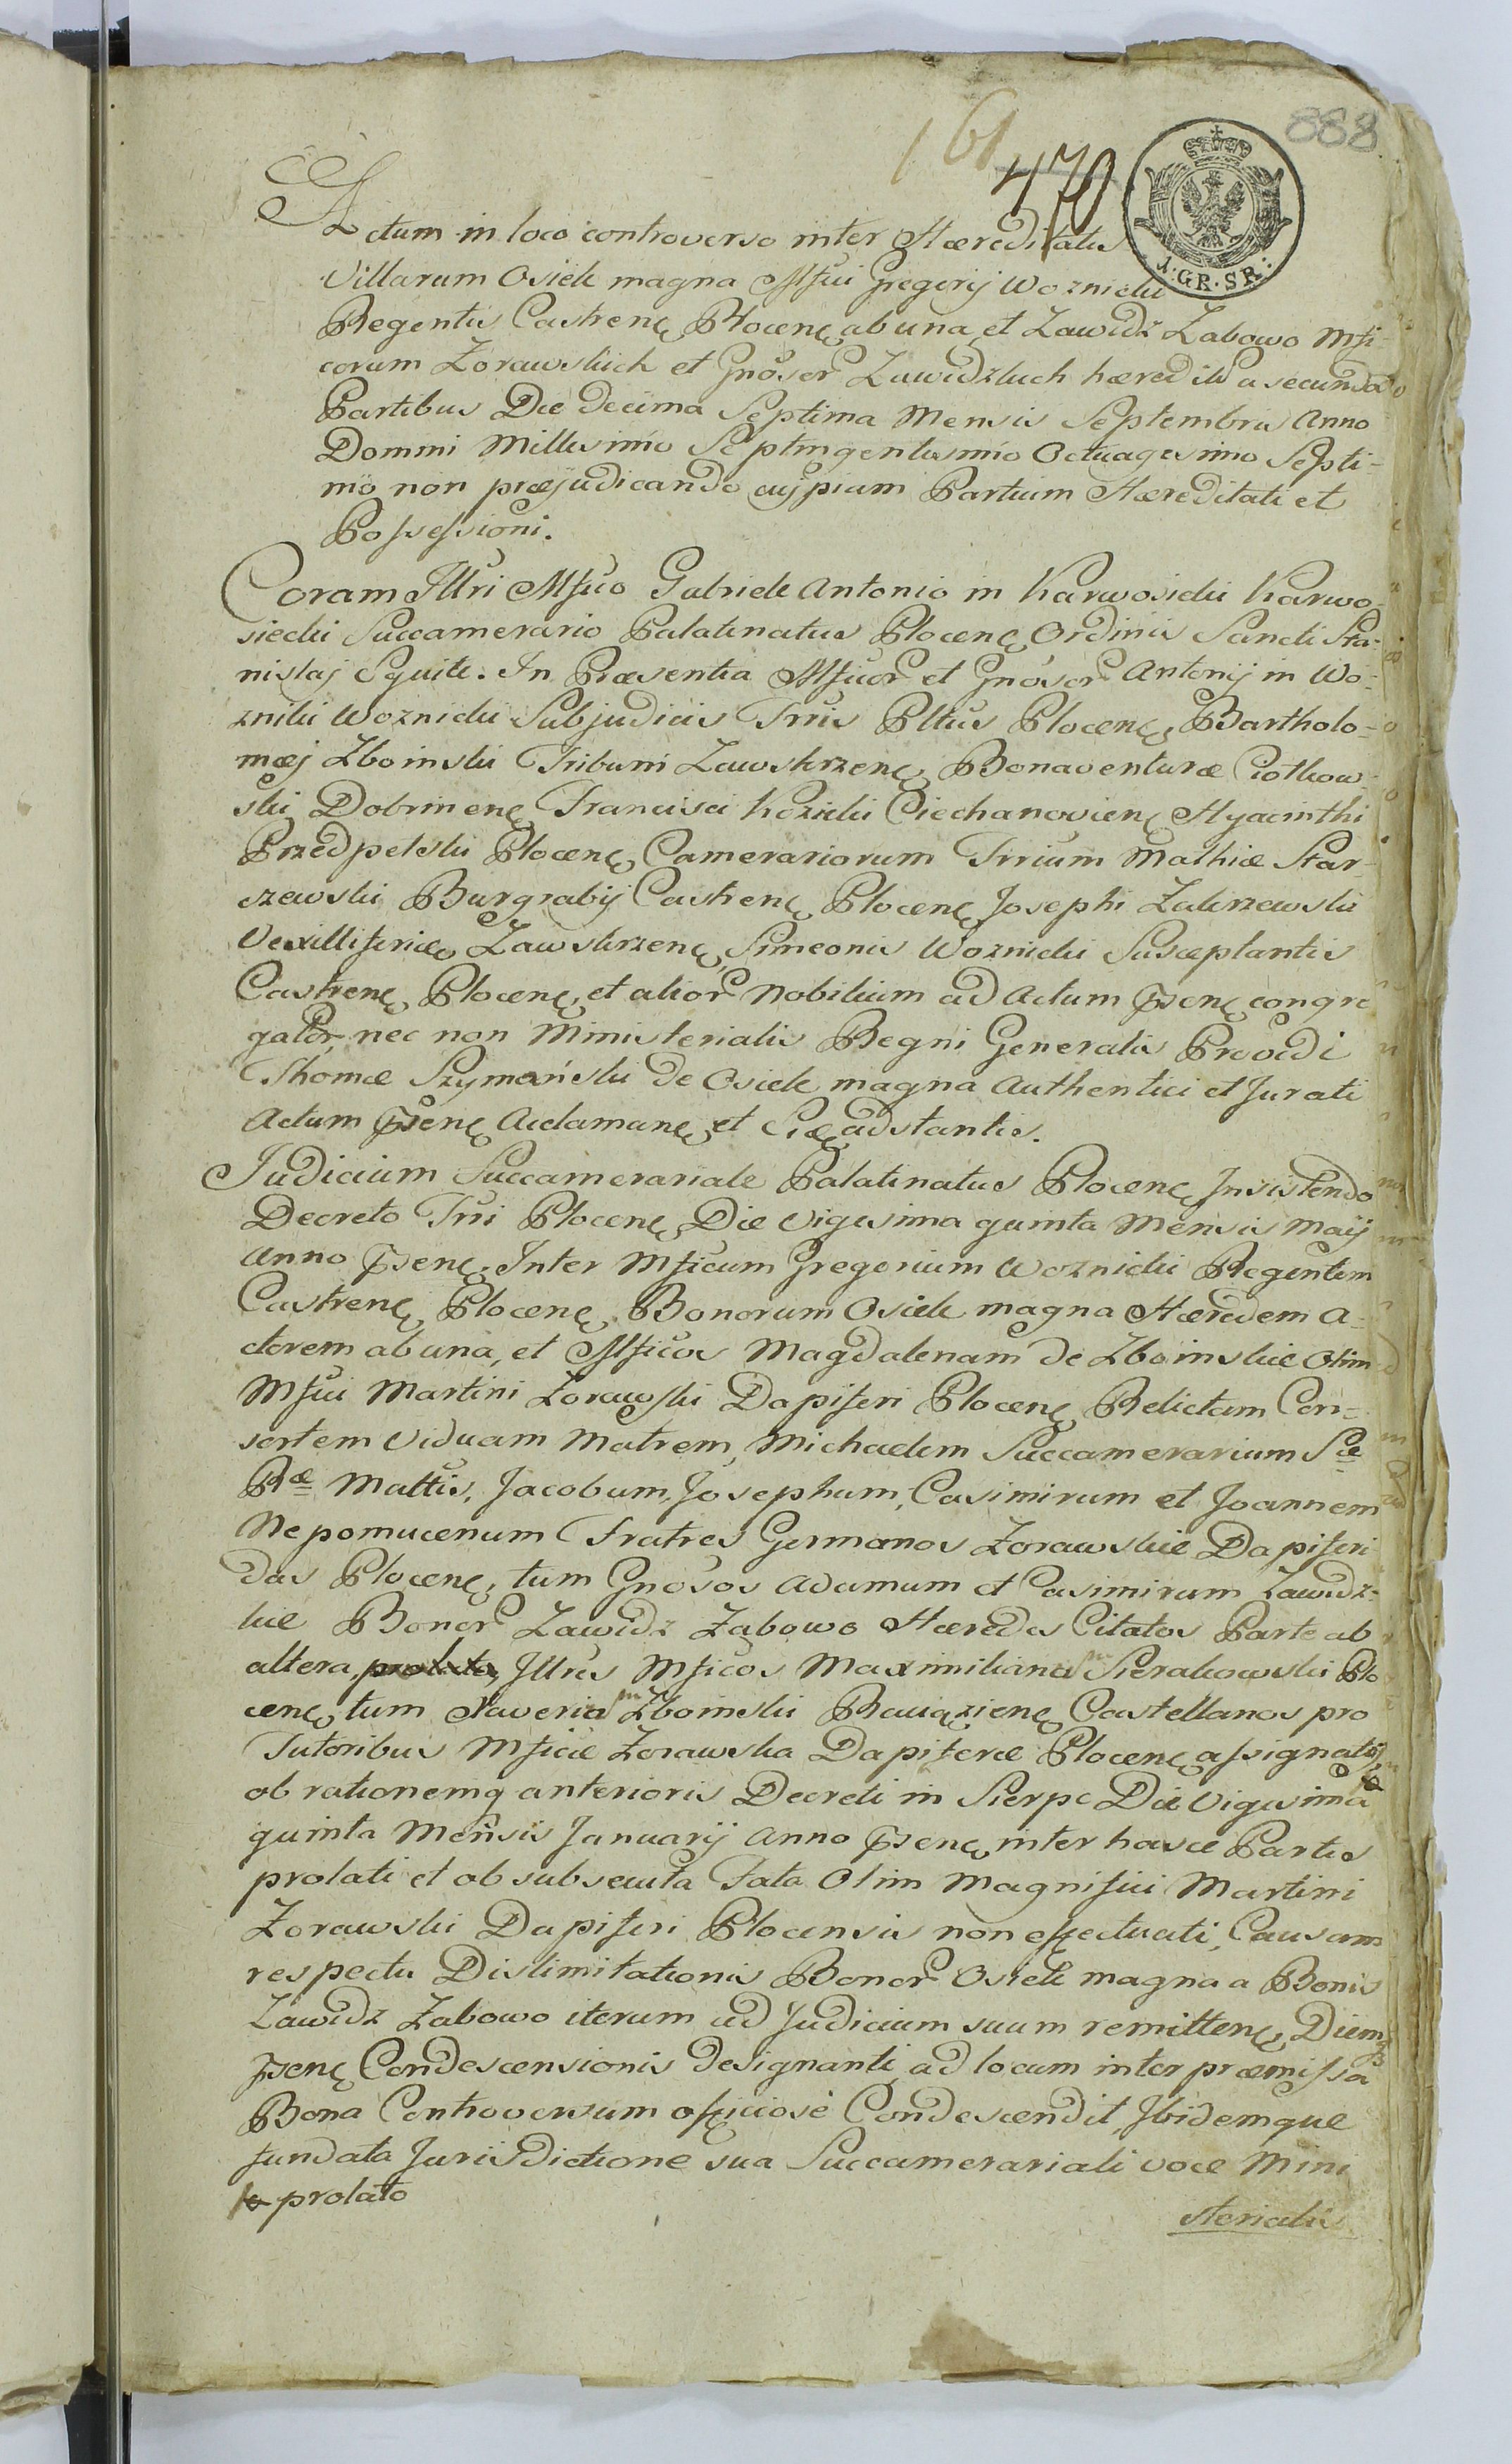 888
161
470
1·GR·SR·
Actum in loco controverso inter Hæreditates
Villarum Osiek magna Mfici Gregorij Woznicki
Regentis Castrenę Płocenę ab una, et Zawidz Zabowo Mfi-
corum Zorawskich et Gnosor Zawidzkich hæred a secunda
Partibus Die decima Septima Mensis Septembris Anno
Domini Millesimo Septingentesimo Octuagesimo Septi-
mo non præjudicando cujpiam Partium Hæreditati et
Possessioni.
Coram Illri Mfico Gabriele Antonio in Karwosieki Karwo-
siecki Succamerario Palatinatus Plocenę Ordinis Sancti Sta-
nislaj Equite. In Præsentia Mficor et Gnosor Antonij in Wo-
zniki Woznicki Subjudicis Trris Pltus Plocenę, Bartholo-
mæj Zboinski Tribuni Zawskrzenę, Bonaventuræ Ciołkow-
ski Dobrinenę Francisci Kozicki Ciechanovienę Hyacinthi
Przedpełski Plocenę Camerariorum Trrium Mathiæ Star-
czewski Burgrabij Castrenę Plocenę Josephi Zakrzewski
Vexilliferidæ Zawskrzenę, Simeonis Woznicki Susceptantis
Castrenę Plocenę, et alior Nobilium ad Actum pnsenę congre
gator nec non Ministerialis Regni Generalis Providi
Thomæ Szymański de Osiek magna Authentici et Jurati
Actum pnsenę Acclamanę et Siæ adstantis.
Judicium Succamerariale Palatinatus Plocenę Insistendo
Decreto Trri Plocenę Die Vigesima quinta Mensis Maij
Anno pnsenę. Inter Mficum Gregorium Woznicki Regentem
Castrenę Plocenę Bonorum Osiek magna Hæredem A-
ctorem ab una, et Mficos Magdalenam de Zboinskie Olim
Mfici Martini Zorawski Dapiferi Plocenę Relictam Con-
sortem Viduam Matrem, Michaelem Succamerarium Sæ
Ræ Mattis, Jacobum, Josephum, Casimirum et Joannem
Nepomucenum Fratres Germanos Zorawskie Dapiferi
das Plocenę, tum Gnosos Adamum et Casimirum Zawidz-
kie Bonor Zawidz Ząbowo Hæredes Citatos Parte ab
altera, prolata, Illres Mficos Maximiliana Sierakowski Plo
cenę tum Xaveria Zboinski Raciązienę Castellanos pro
Tutoribus Mficæ Zorawska Dapiferæ Plocenę assignatos
ob rationemq anterioris Decreti in Sierpc Die Vigesima
quinta Mensis Januarij Anno pnsenę inter hasce Partes
prolati et ob subsecuta Fata Olim Magnifici Martini
Zorawski Dapiferi Plocensis non effectuati, Causam
respectu Dislimitationis Bonor Osiek magna a Bonis
Zawidz Zabowo iterum ad Judicium suum remittenę, Diemq3
pnsenę Condescensionis designanti, ad locum inter præmissa
Bona Controversum officiosè Condescendit, Ibidemque
fundata Jurisdictione sua Succamerariali voce Mini
prolato
sterialis